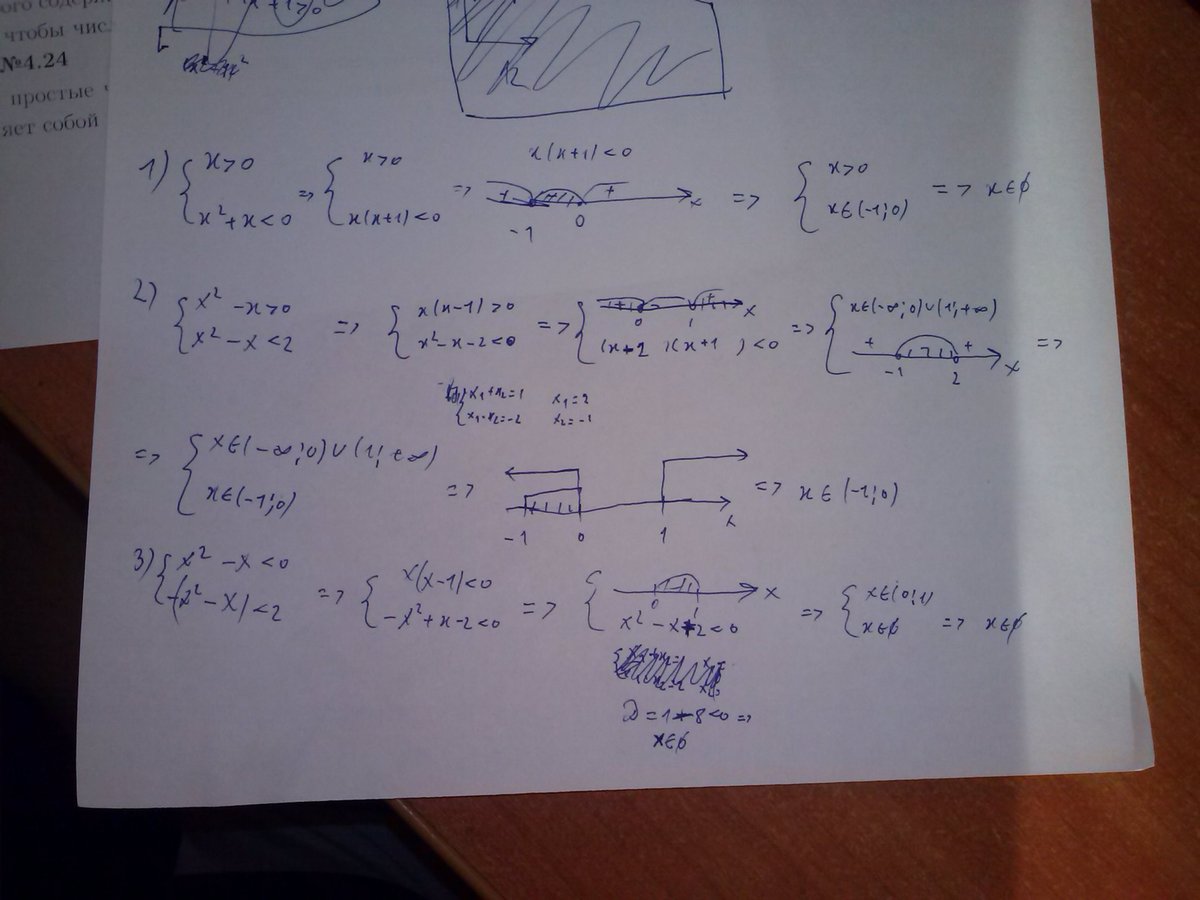 ого содерж
чтобы чис
№4.24
простые ч
яет собой
x+1>0
1) { x>0 x²+x<0 => { x>0 x(x+1)<0 => x(x+1)<0 + + -1 0 x => { x>0 x∈(-1;0) => x∈ϕ
2) { x²-x>0 x²-x<2 => { x(x-1)>0 x²-x-2<0 => { + + 0 1 x (x-2)(x+1)<0 => { x∈(-∞;0)∪(1;+∞) + - + -1 2 x =>
x₁+x₂=1 x₁=2
x₁·x₂=-2 x₂=-1
=> { x∈(-∞;0)∪(1;+∞) x∈(-1;0) => -1 0 1 x => x∈(-1;0)
3) { x²-x<0 -(x²-x)<2 => { x(x-1)<0 -x²+x-2<0 => { 0 1 x x²-x+2<0 => { x∈(0;1) x∈ϕ => x∈ϕ
D=1-8<0 =>
x∈ϕ